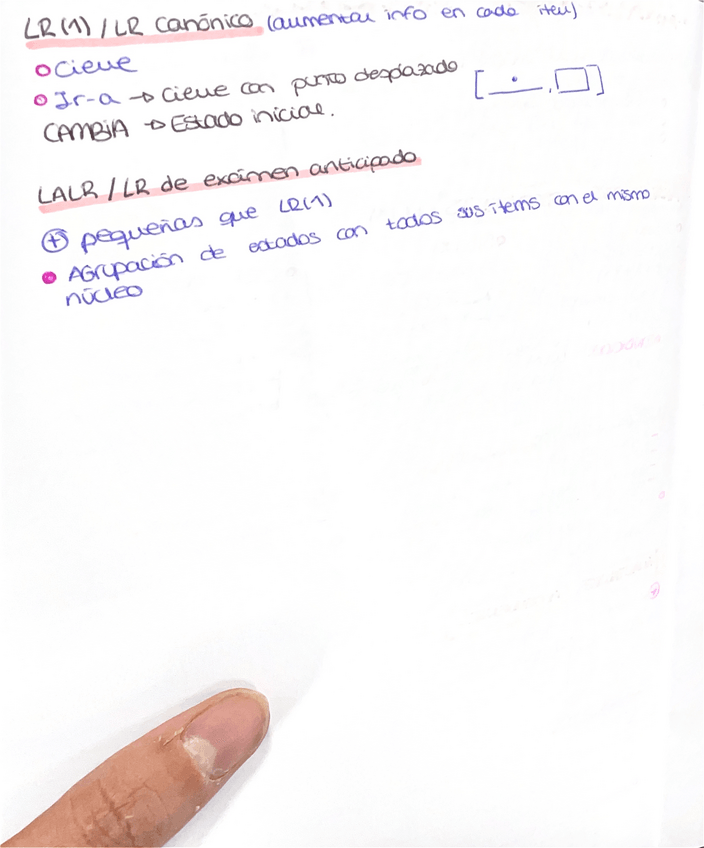 LR(1) / LR canónico (aumentar info en cada item)
Cierre
Ir-a → Cierre con punto desplazado [ __•__ , □ ]
CAMBiA → Estado inicial.
LALR / LR de exámen anticipado
⊕ pequeñas que LR(1)
AGrupación de estados con todos sus items con el mismo
núcleo